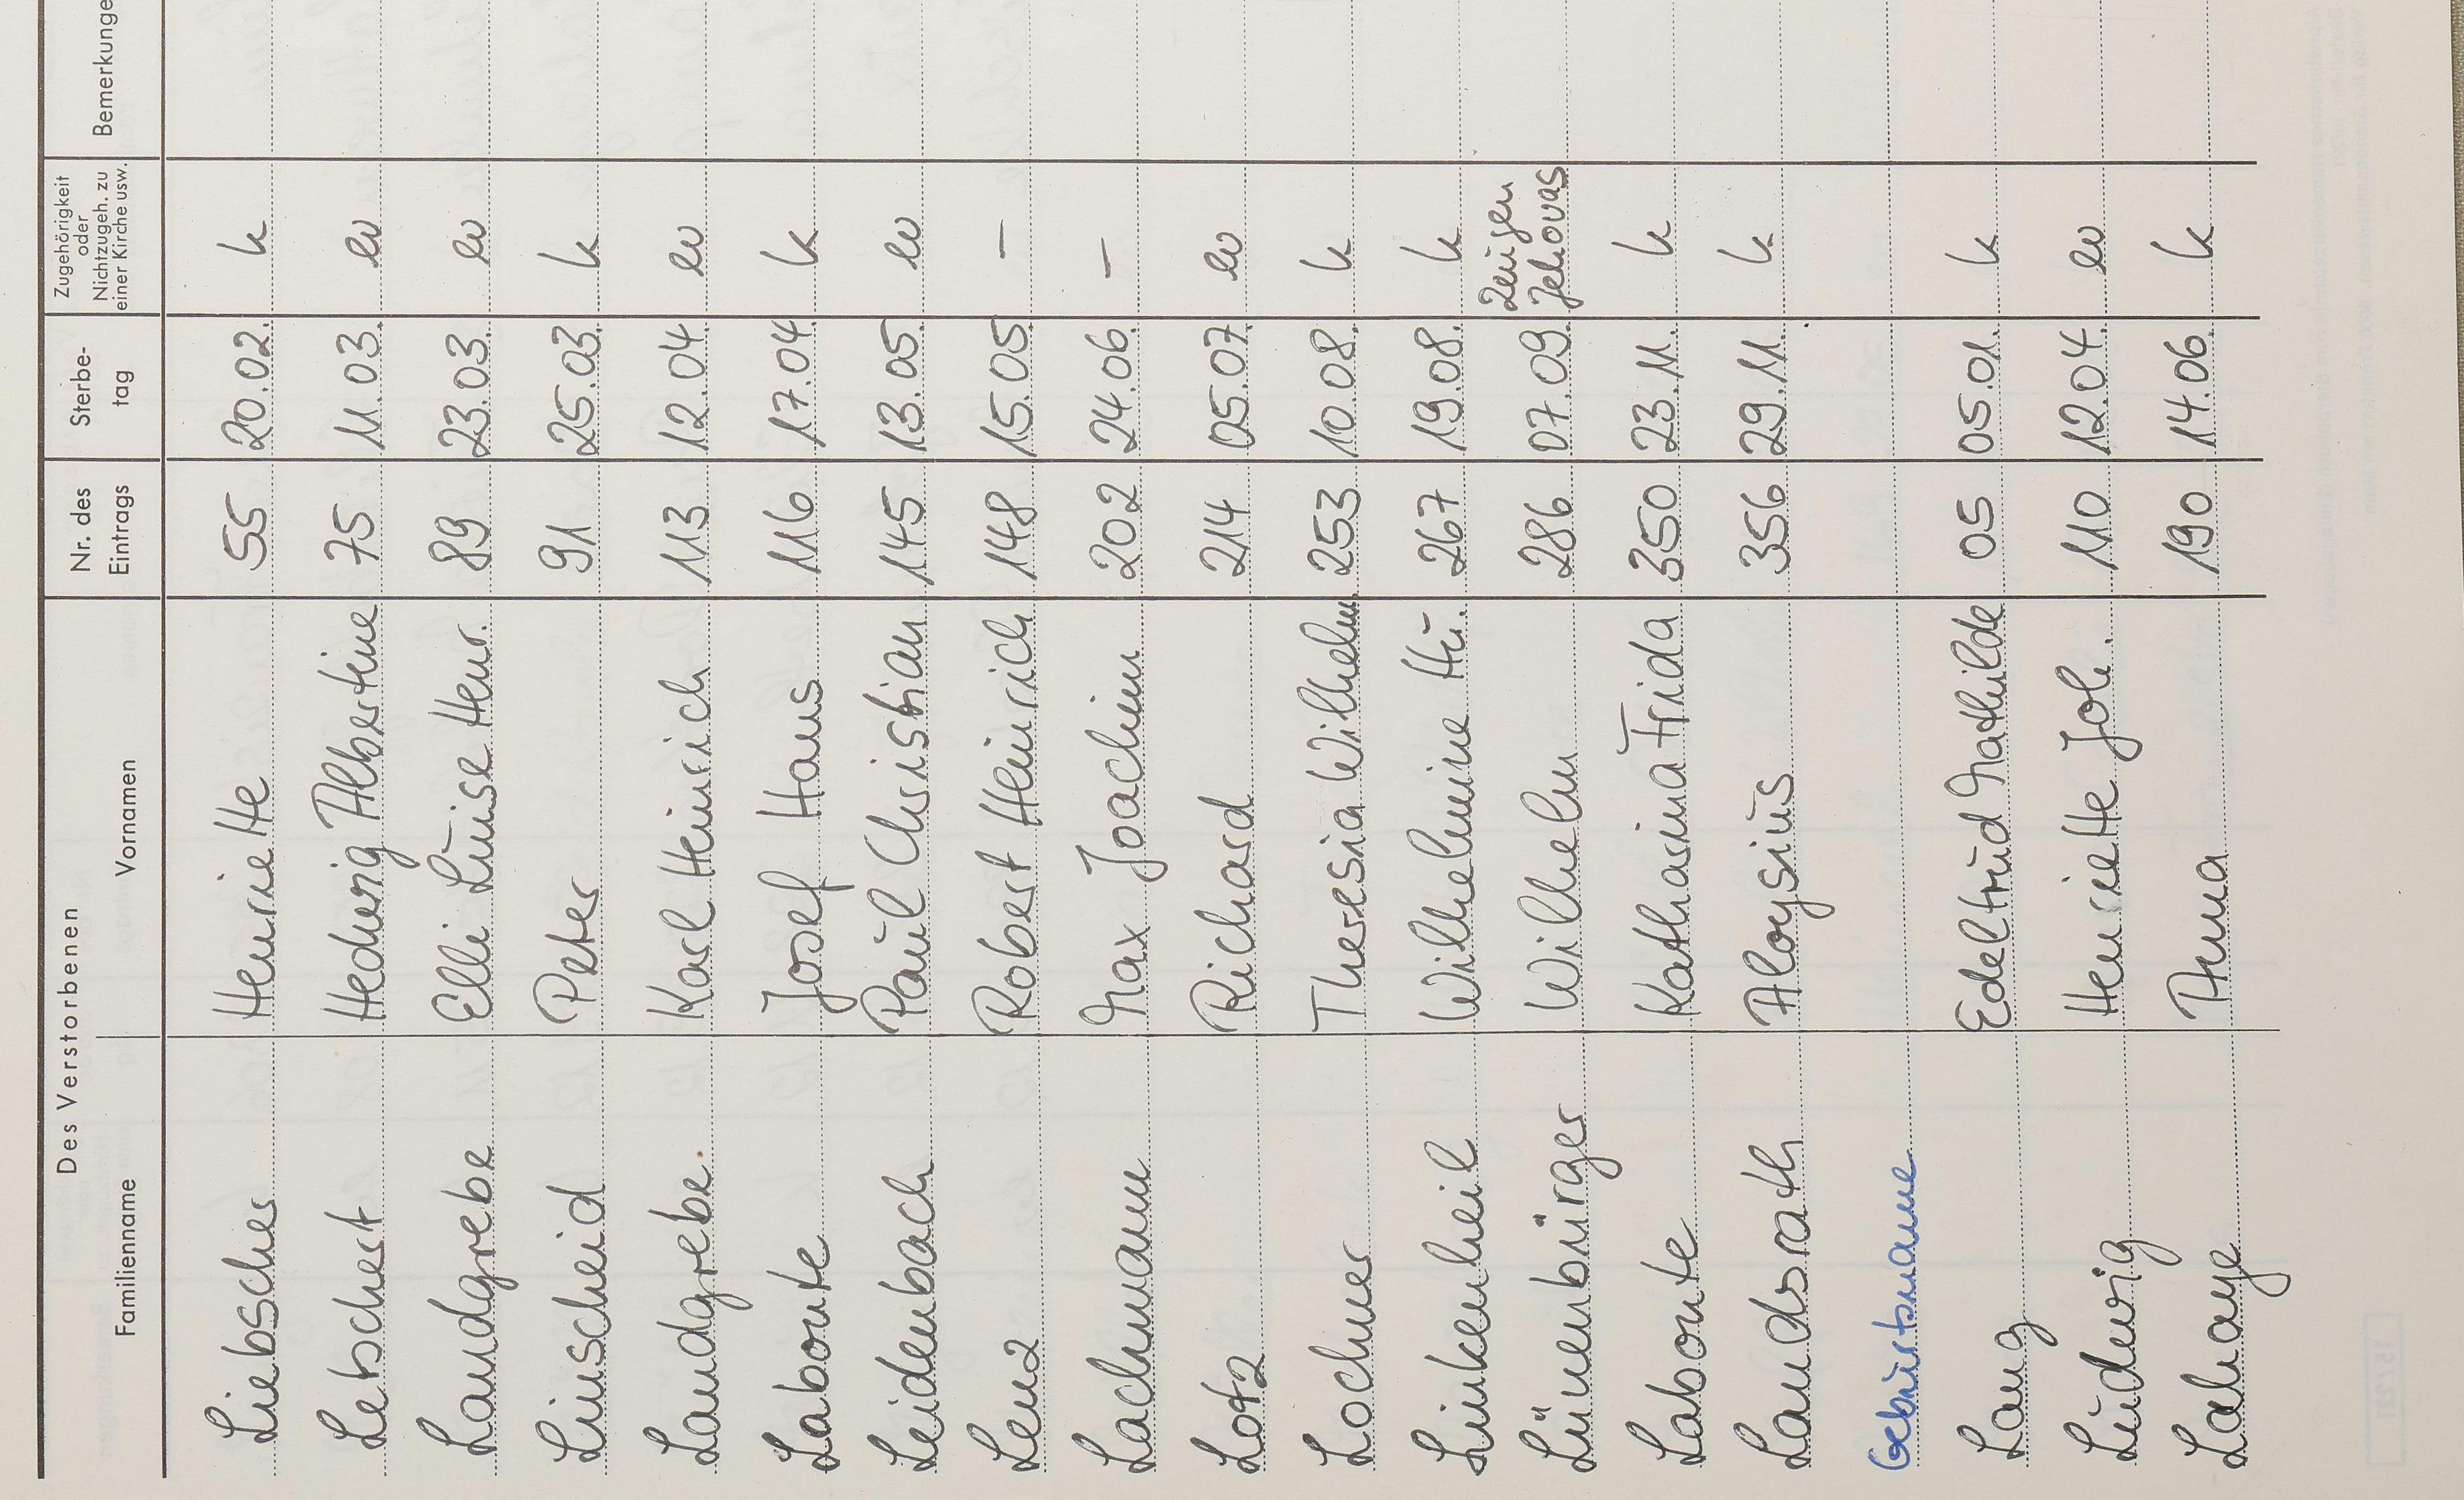 Des Verstorbenen
Familienname Vornamen Nr. des Eintrags Sterbe-tag Zugehörigkeit oder Nichtzugeh. zu einer Kirche usw. Bemerkunge
Liebscher Henriette 55 20.02. k
Lebschert Hedwig Albertine 75 11.03. ev
Landgrebe Elli Luise Henr. 89 23.03. ev
Linscheid Peter 91 25.03. k
Landgrebe Karl Heinrich 113 12.04. ev
Labonte Josef Hans 116 17.04. k
Leidenbach Paul Christian 145 13.05. ev
Lenz Robert Heinrich 148 15.05. –
Lachmann Max Joachim 202 24.06. –
Lotz Richard 214 05.07. ev
Lochner Theresia Wilhelm. 253 10.08. k
Linkenheil Wilhelmine Hu. 267 19.08. k
Lünenbürger Wilhelm 286 07.09. Zeugen Jehovas
Labonte Katharina Frida 350 23.11. k
Landsrath Aloysius 356 29.11. k
Geburtsname
Lang Edeltrud Mathilde 05 05.01. k
Ludwig Henriette Joh. 110 12.04. ev
Lahaye Anna 190 14.06. k